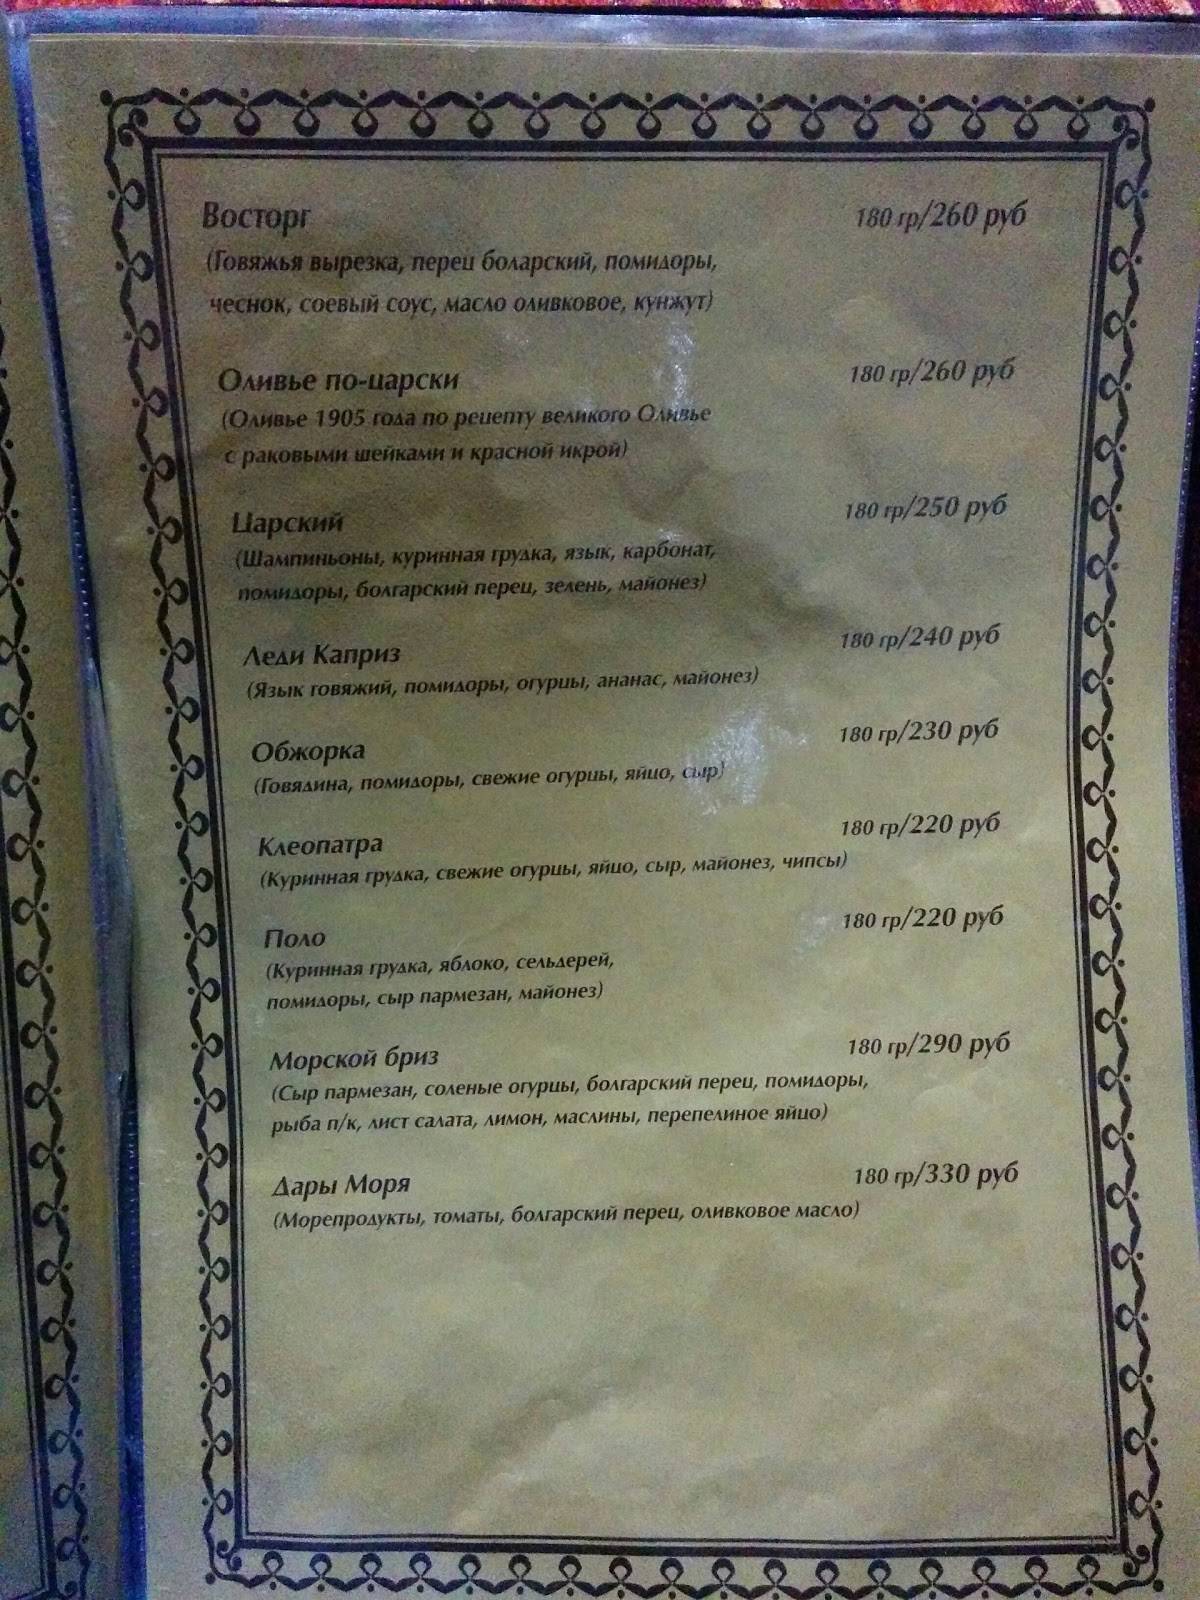 Восторг 180 гр/260 руб
(Говяжья вырезка, перец боларский, помидоры,
чеснок, соевый соус, масло оливковое, кунжут)
Оливье по-царски 180 гр/260 руб
(Оливье 1905 года по рецепту великого Оливье
с раковыми шейками и красной икрой)
Царский 180 гр/250 руб
(Шампиньоны, куринная грудка, язык, карбонат,
помидоры, болгарский перец, зелень, майонез)
Леди Каприз 180 гр/240 руб
(Язык говяжий, помидоры, огурцы, ананас, майонез)
Обжорка 180 гр/230 руб
(Говядина, помидоры, свежие огурцы, яйцо, сыр)
Клеопатра 180 гр/220 руб
(Куринная грудка, свежие огурцы, яйцо, сыр, майонез, чипсы)
Поло 180 гр/220 руб
(Куринная грудка, яблоко, сельдерей,
помидоры, сыр пармезан, майонез)
Морской бриз 180 гр/290 руб
(Сыр пармезан, соленые огурцы, болгарский перец, помидоры,
рыба п/к, лист салата, лимон, маслины, перепелиное яйцо)
Дары Моря 180 гр/330 руб
(Морепродукты, томаты, болгарский перец, оливковое масло)